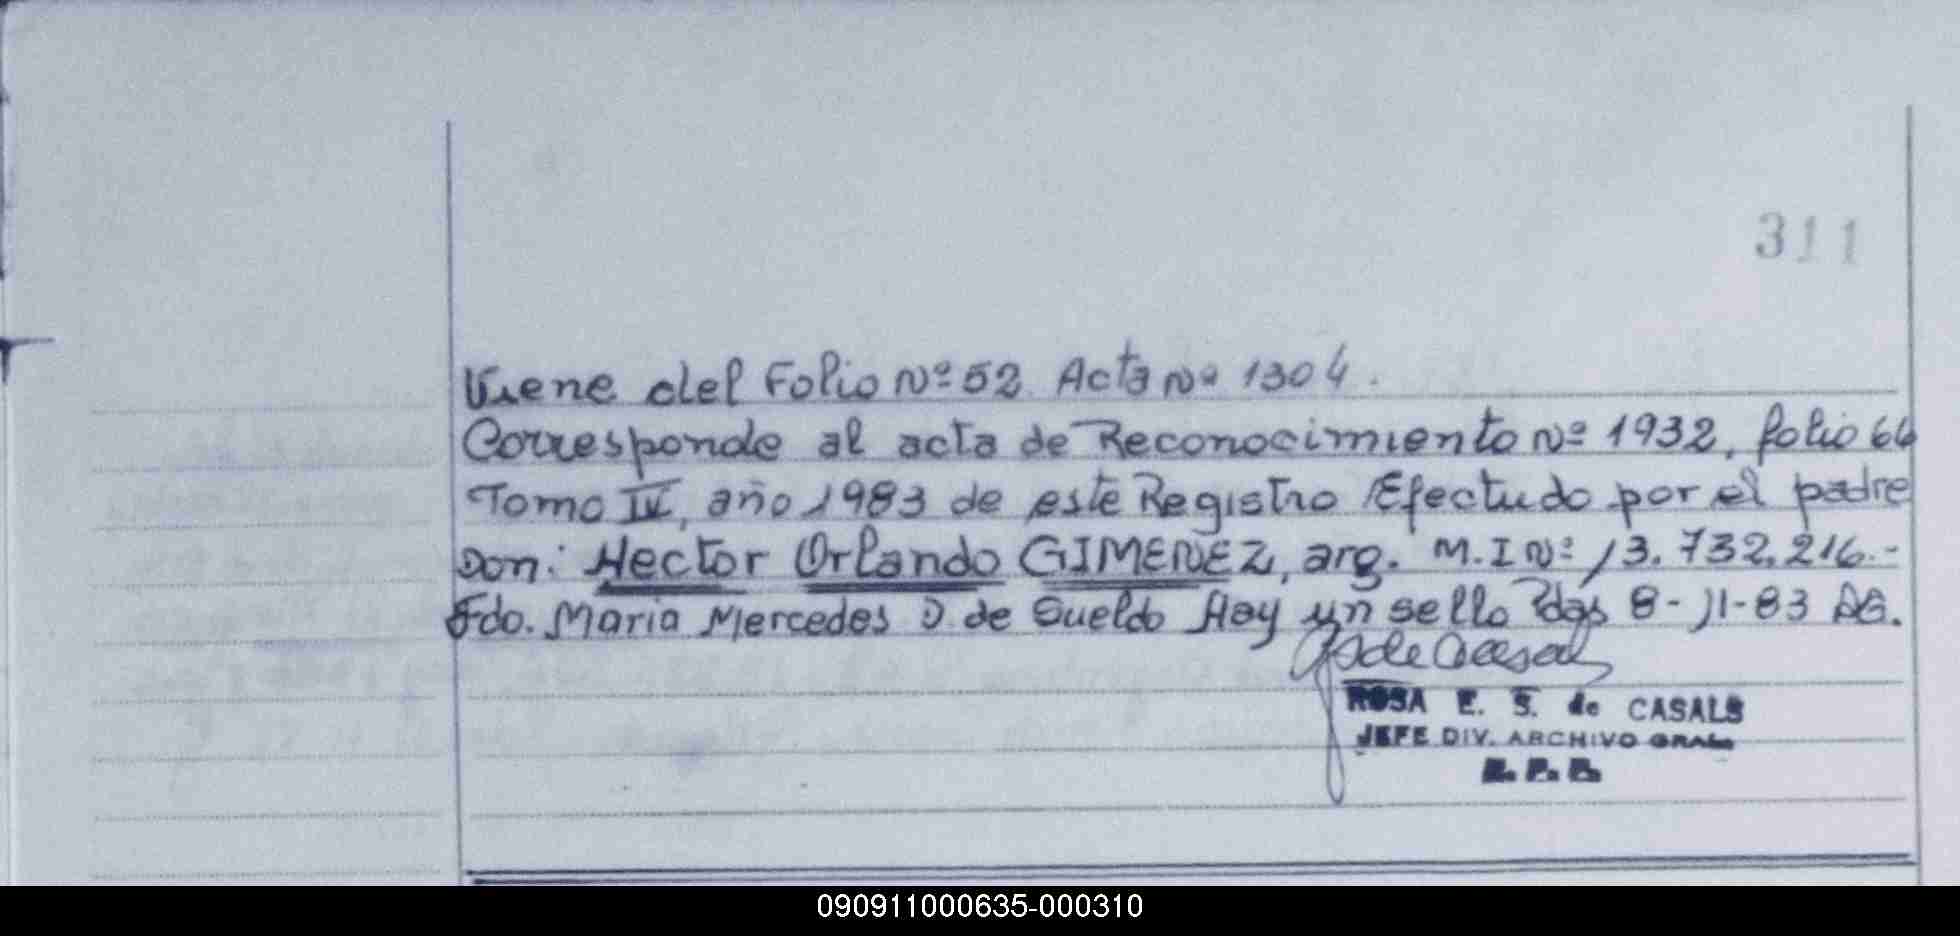 311
Viene del Folio Nº 52 Acta Nº 1304.
Corresponde al acta de Reconocimiento Nº 1932, folio 66
Tomo IV, año 1983 de este Registro Efectudo por el padre
Don: Hector Orlando GIMENEZ, arg. M.I Nº 13.732.216.-
Fdo. Maria Mercedes D. de Sueldo Hay un sello Pdas 8-11-83 AG.
ROSA E. S. de CASALS
JEFE DIV. ARCHIVO GRAL.
090911000635-000310